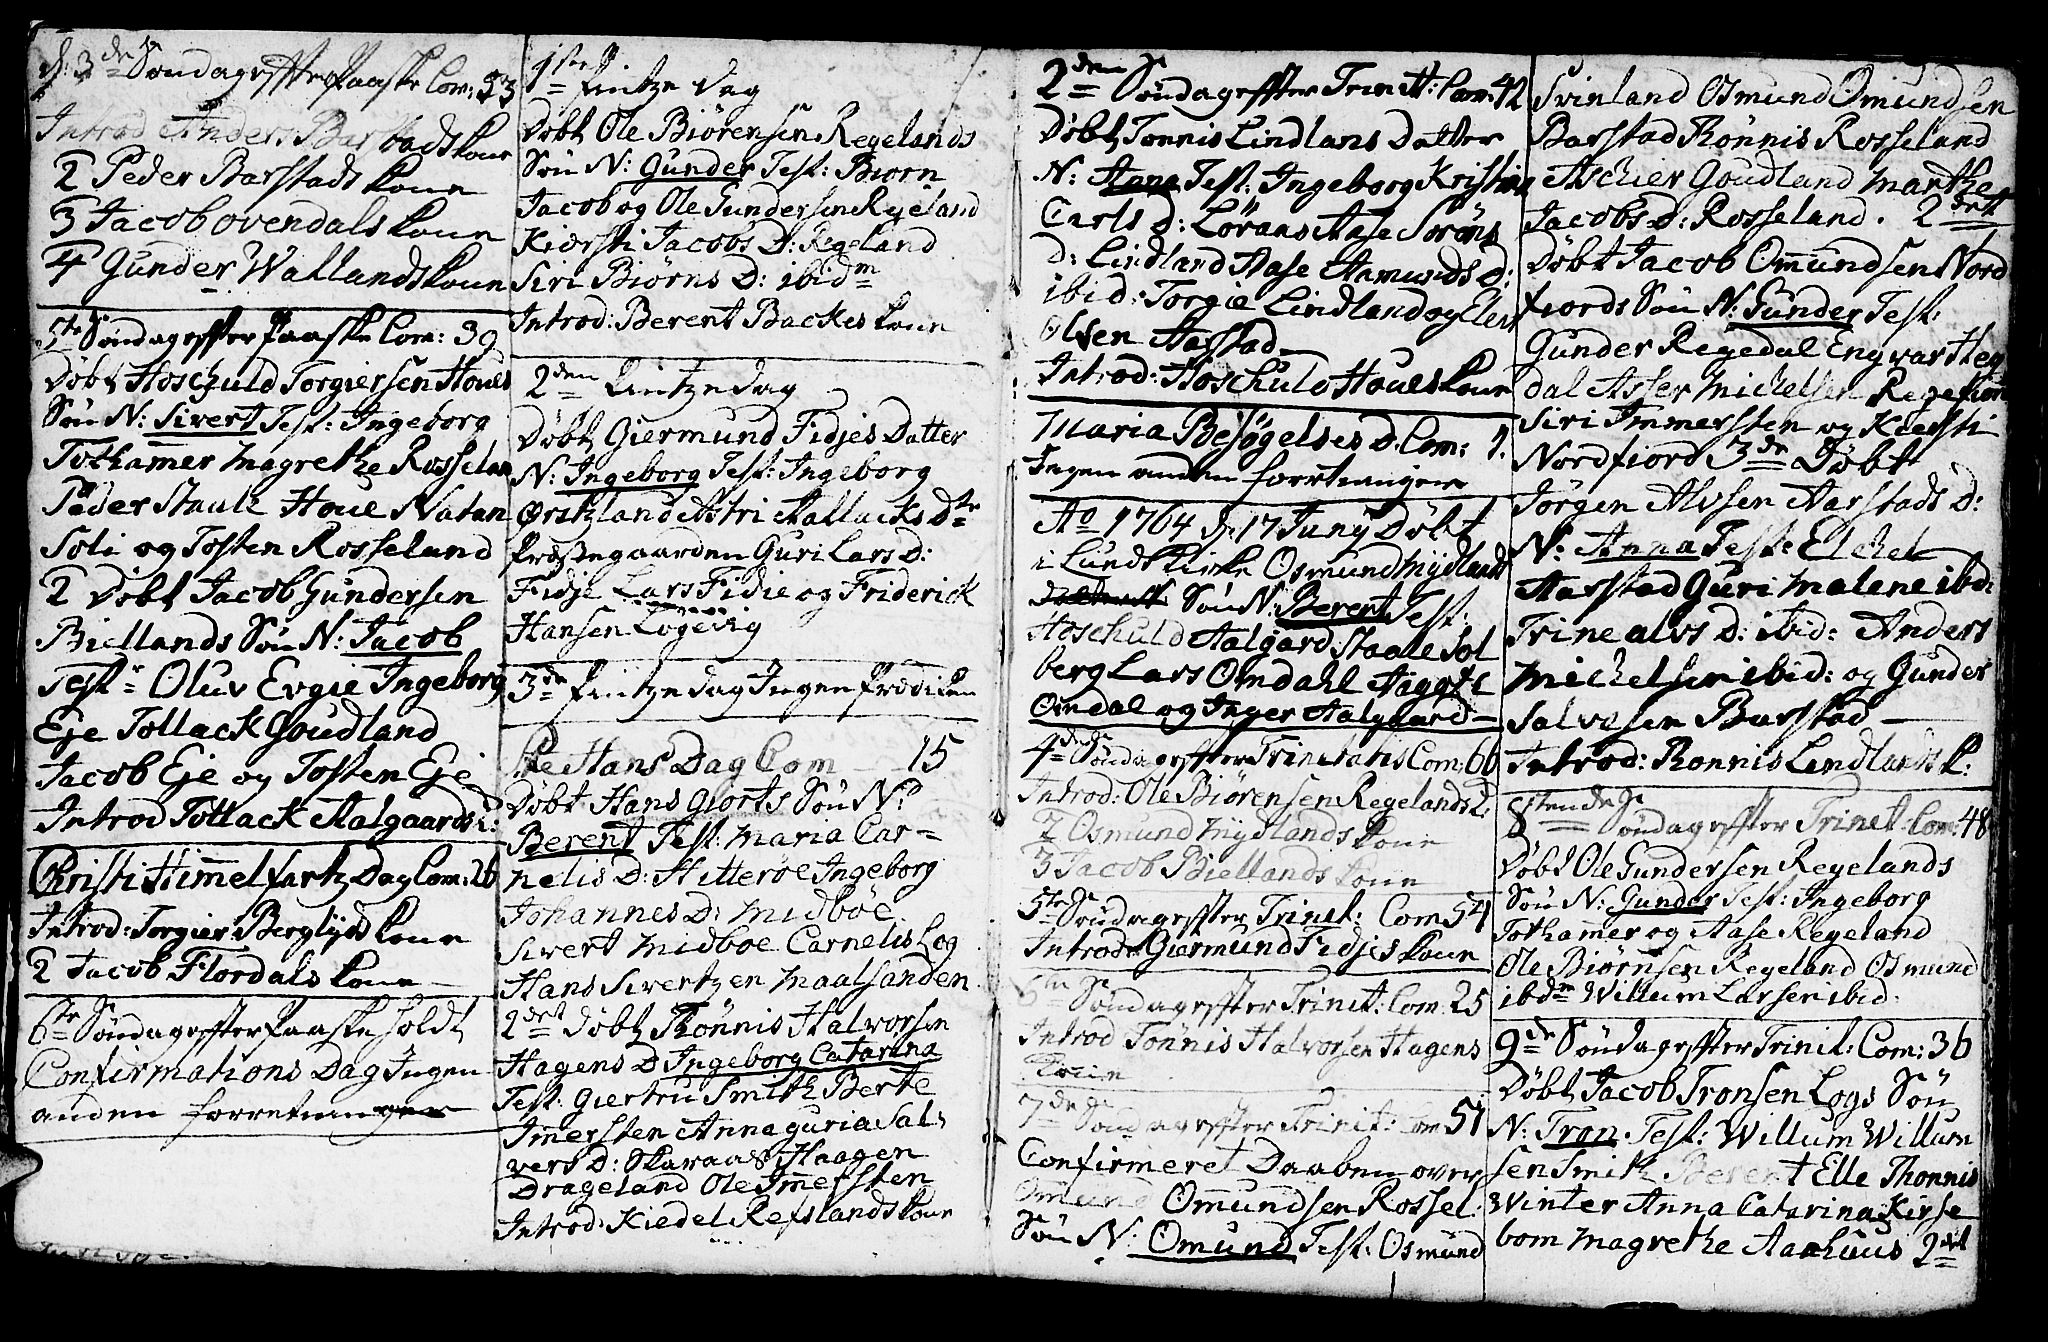 d: 3de Søndag effter Paaske Com: 53
Introd Anders Barstads kone
2 Peder Barstads kone
3 Jacob ovendals kone
4 Gunder Wallands kone
5te Søndag effter Paaske Com: 39
Døbt Hoschuld Torgiersen Houes
Søn N: Sivert Test: Ingeborg
Tothamer Magrethe Rosselan
Peder Staule Houe Natan
Soli og Tosten Rosseland
2 Døbt Jacob Gundersen
Biellands Søn N: Jacob
Test: Oluv Evgie Ingeborg
Eje Tollack Goudland
Jacob Eje og Tosten Eje
Introd Tollack Aalgaards k:
Christi Himmelfartz Dag Com: 26
Introd: Torgier Berglyds kone
2 Jacob Flordals kone
6te Søndag effter Paaske holdt
Confirmations Dag Ingen
anden forretninger
1ste Pintze Dag
Døbt Ole Biørensen Regelands
Søn N: Gunder Test: Biørn
Jacob og Ole Gundersen Regeland
Kiersti Jacobs D: Regeland
Siri Biørns D: ibidm
Introd: Berent Backes kone
2den Pintze dag
Døbt Giermund Fidjes Datter
N: Ingeborg Test: Ingeborg
Ørstzland Astri Aallacks Dtr
Præstegaarden Guri Lars D:
Fidje Lars Fidie og Friderick
Hansen Løgevig
3de Pintze dag Ingen Prædiken
Ste Hans Dag Com 15
Døbt Hans Giorts Søn N:
Berent Test: Maria Car=
nelis D: Hitterøe Ingeborg
Johannes D: Midbøe
Sivert Midboe Carnelis Log
Hans Sivertzen Maalsanden
2det Døbt Tønnis Halvorsen
Hagens D Ingeborg Catarina
Test: Giertru Smith Berte
Imersten Anna Guria Sal=
vers D: Skaraas Haagen
Drageland Ole Imersten
Introd: Kiedel Refslands kone
2den S Søndag effter Trinit: Com: 42
Døbt Tønnis Lindlans Datter
N: Anna Test: Ingeborg Kristin
Carls D: Lørans Aase Sørøns
D: Lindland Aase Aamunds D:
ibid: Torgie Lindland og Elert
Olsen Aarstad
Introd: Hoschuld Houes kone
Maria Besøgelses D. Com: 1.
Ingen anden forretninger
Ao 1764 d: 17 Juny Døbt
i Lunds Kirke Osmund Mydland
Søn N: Berent Test:
Hoschuld Aalgard Staale Sol
berg Lars Omdahl Aagote
Omdal og Inger Aalgaard
4de Søndag effter Trinitatis Com: 66
Introd: Ole Biørensen Regelands k:
2 Osmund Mydlands kone
3 Jacob Biellands kone
5te Søndag effter Trinit: Com 54
Introd Giermund Fidjes kone
6te Søndag effter Trinit: Com: 25
Introd Tønnis Halvorsen Hagens
kone
7de Søndag effter Trinit: Com 51
Confirmeret Daaben over
Omund Omundsen Rossel:
Søn N: Omund Test: Osmund
Svinland Osmund Omundsen
Barstad Rønnis Rosseland
Aschier Goudland Marthe
Jacobs D: Rosseland. 2det
Døbt Jacob Omundsen Nord
fiords Søn N: Gunder Test:
Gunder Regedal Engvar Heg
dal Asser Michelsen Regefiord
Siri Immersten og Kiersti
Nordfiord 3de Døbt
Jørgen Alvsen Aarstads D:
N: Anna Test: Elchel
Aarstad Guri Malene ibd:
Trine Alvs D: ibid: Anders
Michelsen ibid: og Gunder
Salvesen Barstad
Introd: Rønnis Lendlands k:
8tende Søndag effter Trinit Com: 48
Døbt Ole Gundersen Regelands
Søn N: Gunder Test: Ingeborg
Tothamer og Aase Regeland
Ole Biørnsen Regeland Osmund
ibdm Willum Larsen ibid:
9de Søndag effter Trinit: Com: 36
Døbt Jacob Tronsen Logs Søn
N: Tron Test: Willum Willum
sen Smith Berent Elle Thonnis
Winter Anna Catarina Kirse
bom Magrethe Aaahuus 2det